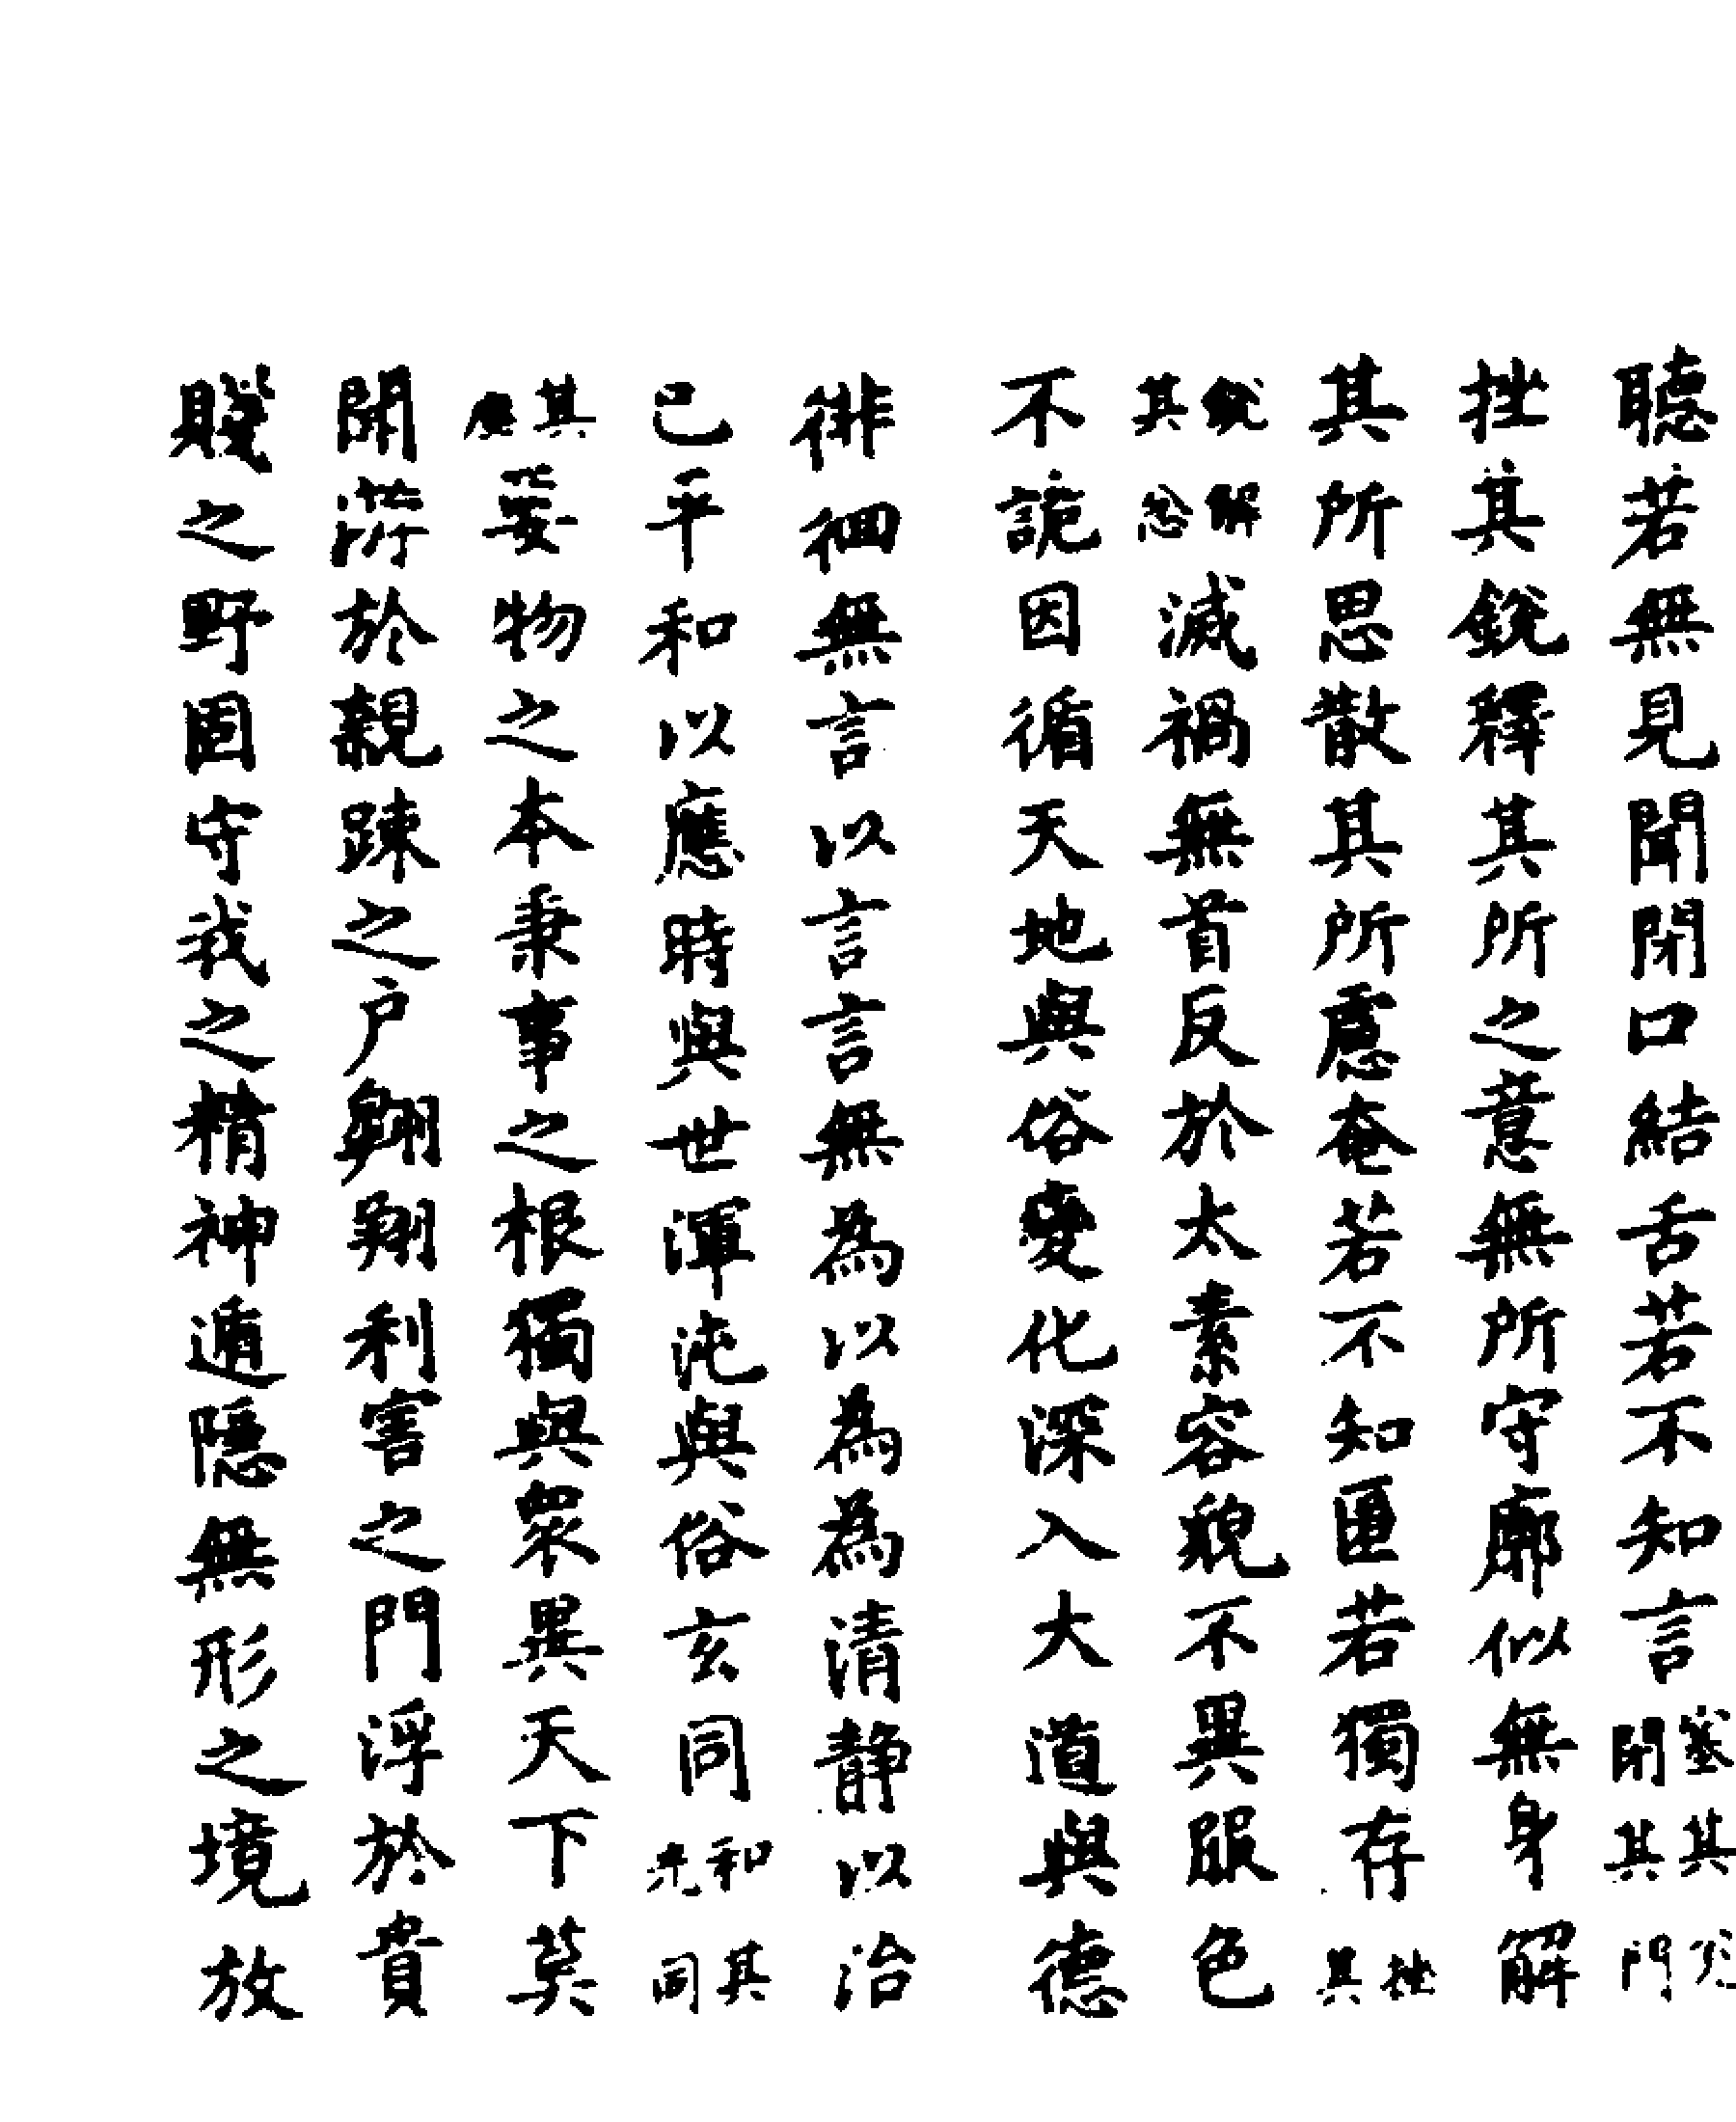 聽若無見聞閉口結舌若不知言塞其兌閉其門
挫其銳釋其所之意無所守廓似無身解
其所思散其所慮奄若不知匱若獨存挫其
銳解其忿滅禍無首反於太素容貌不異服色
不詭因循天地與俗變化深入大道與德
徘徊無言以言言無為以為為清靜以治
已平和以應時與世渾沌與俗玄同和其光同
其塵要物之本秉事之根獨與衆異天下莫
於親疎之戶翱翔利害之門浮於貴
賤之野固守我之精神遁隱無形之境放